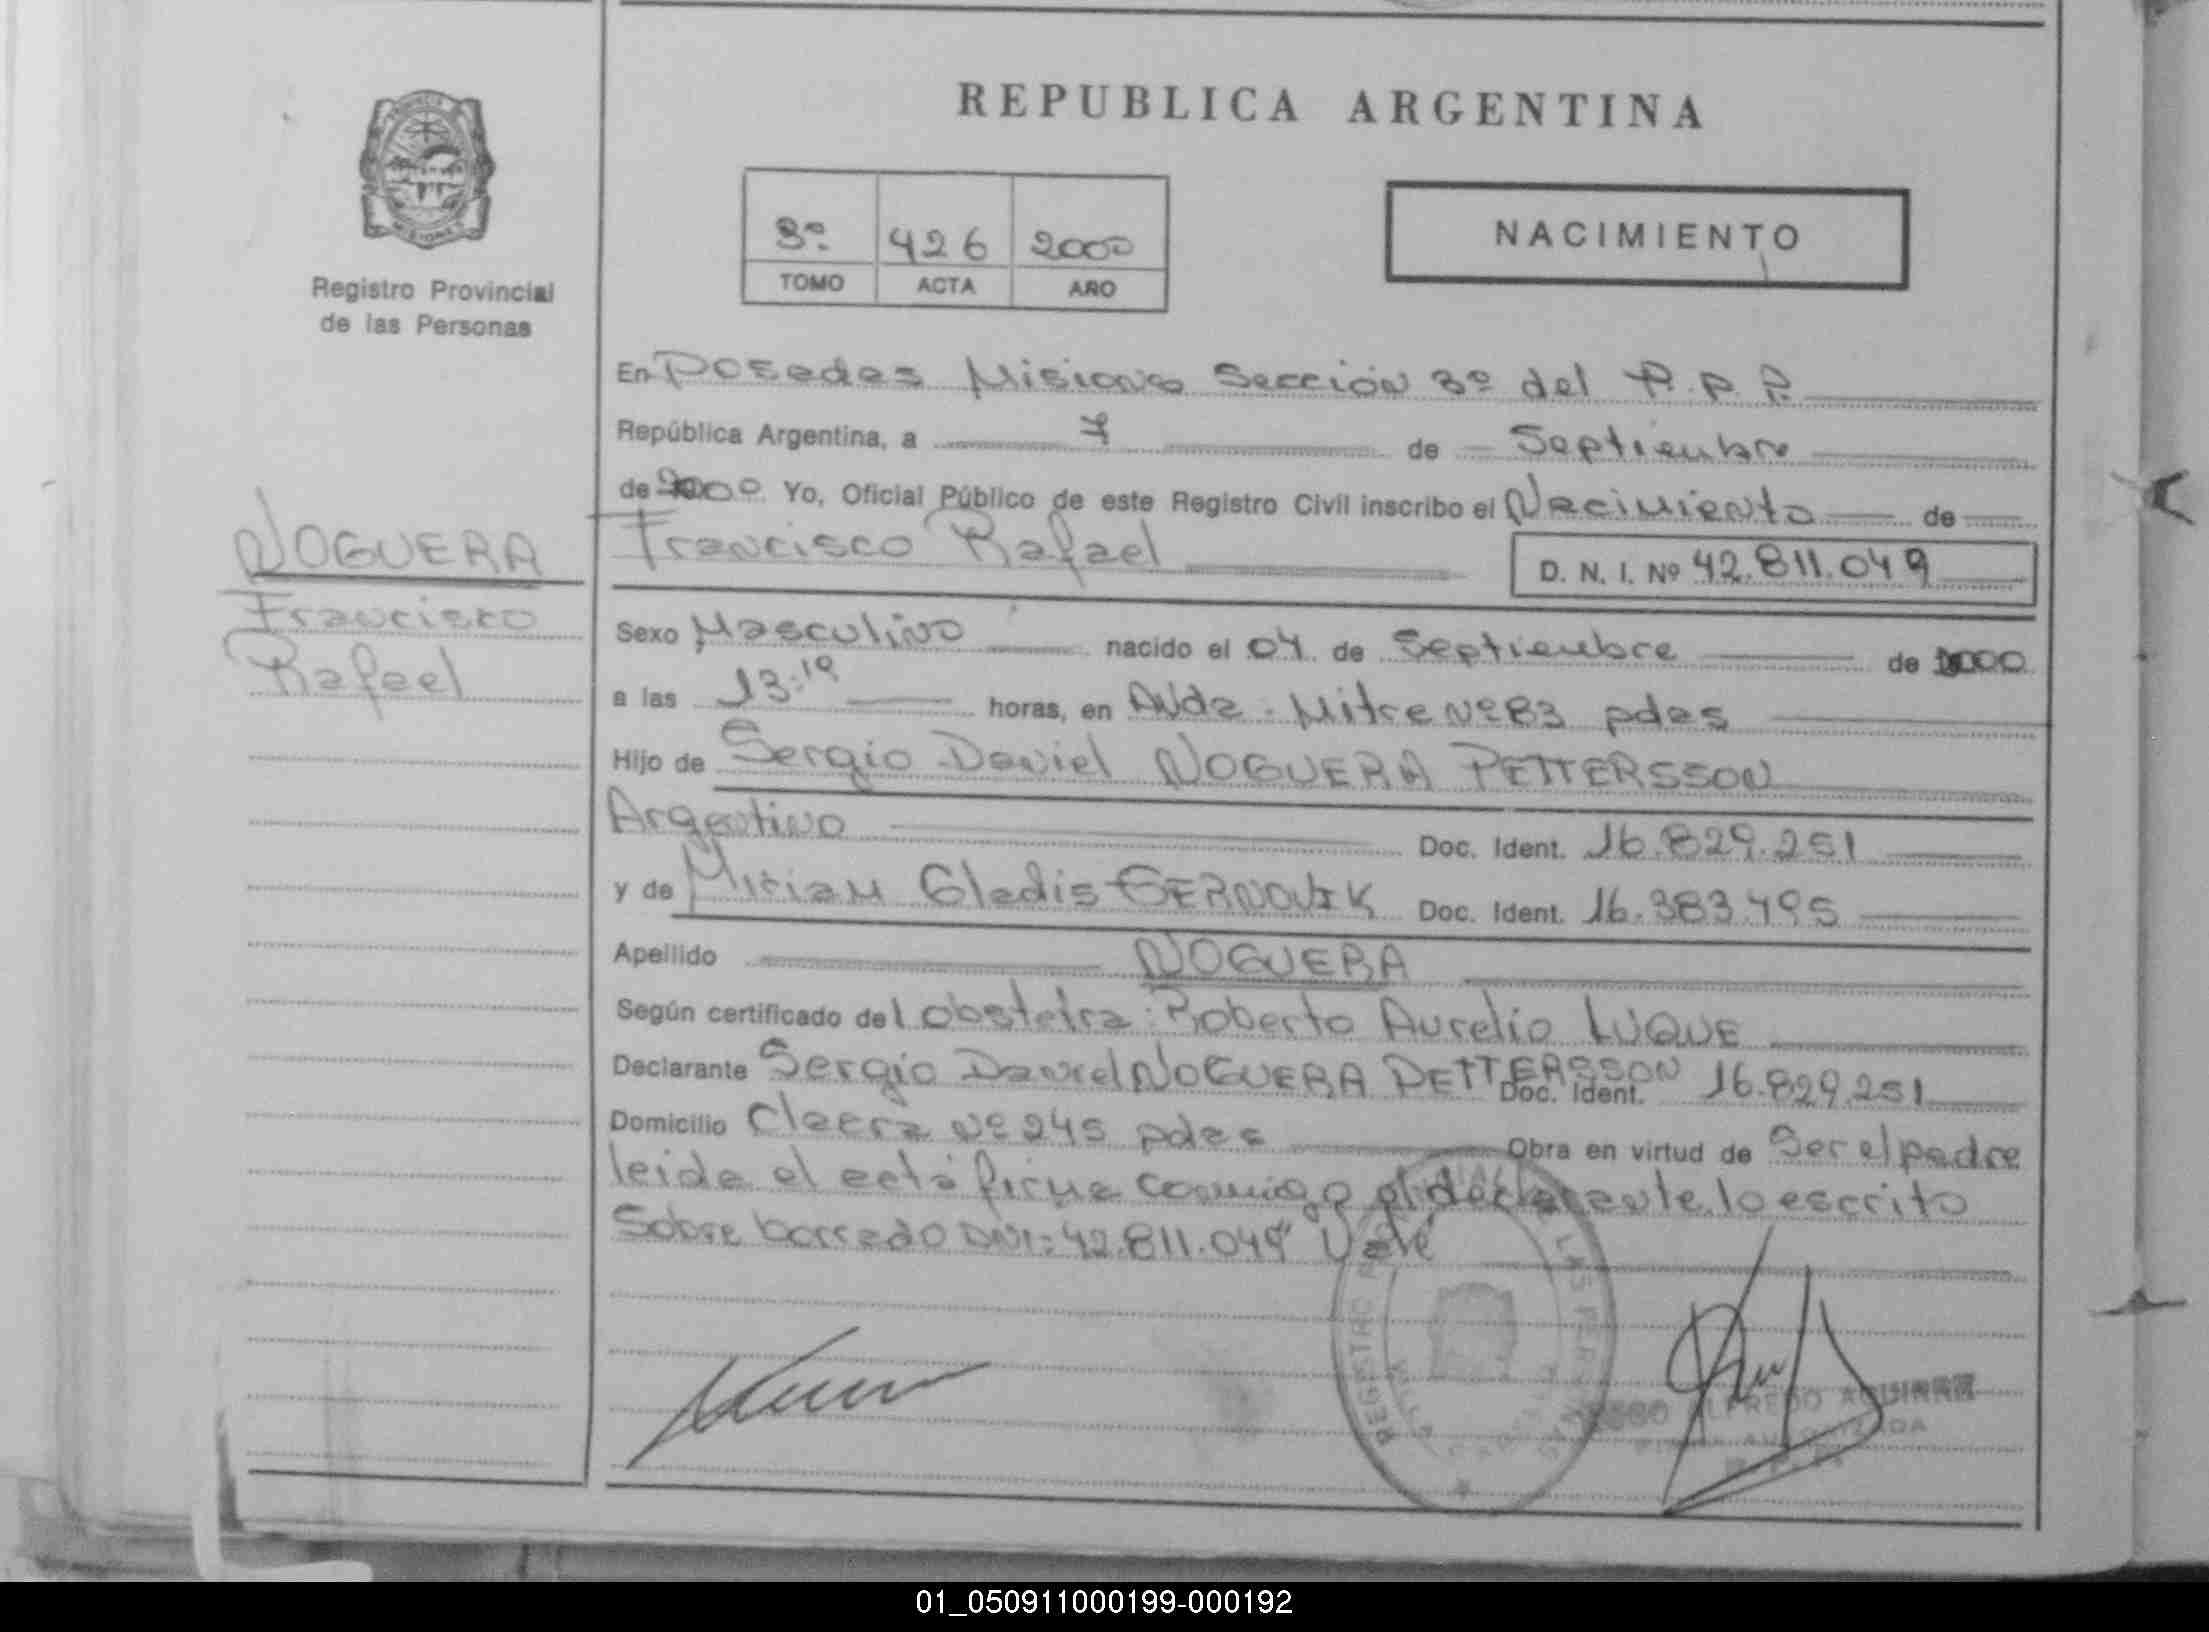 REPUBLICA ARGENTINA
PROVINCIA
MISIONES
Registro Provincial
de las Personas
3º 426 2000
TOMO ACTA AÑO
NACIMIENTO
En Posadas Misiones Sección 3º del R.P.P.
República Argentina, a 7 de Septiembre
de 2000 Yo, Oficial Público de este Registro Civil inscribo el Nacimiento de
Francisco Rafael
D. N. I. Nº 42.811.049
NOGUERA
Francisco
Rafael
Sexo Masculino nacido el 04 de Septiembre de 2000
a las 13:10 horas, en Avda. Mitre Nº 83 pdas
Hijo de Sergio Daniel NOGUERA PETTERSSON
Argentino Doc. Ident. 16.829.251
y de Miriam Gladis Doc. Ident. 16.383.495
Apellido NOGUERA
Según certificado del Obstetra: Roberto Aurelio LUQUE
Declarante Sergio Daniel NOGUERA PETTERSSON Doc. Ident. 16.829.251
Domicilio Nº 245 pdas Obra en virtud de Ser el padre
leida el acta firma conmigo el declarante. lo escrito
Sobre borrado DNI: 42.811.049" Vale
REGISTRO LAS PERSONAS
ALFREDO AGUIRRE
01_050911000199-000192